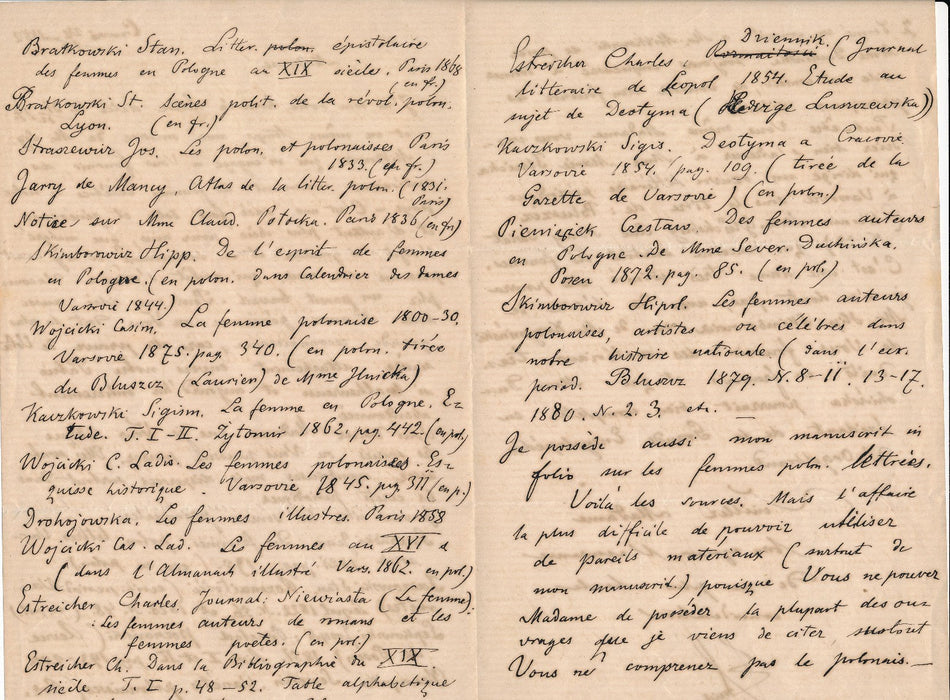 Bratkowski Stan. Litter. polon. épistolaire
des femmes en Pologne au XIX siècle. Paris 1868
(en fr.)
Bratkowski St. Scènes polit. de la révol. polon.
Lyon. (en fr.)
Straszewicz Jos. Les polon. et polonaises Paris
1833. (en fr.)
Jarry de Mancy, Atlas de la litter. polon. (1831.
Paris)
Notice sur Mme Claud. Potocka. Paris 1836 (en fr)
Skimborowicz Hipp. De l'esprit de femmes
en Pologne. (en polon. dans Calendrier des dames
Varsovie 1844.)
Wojcicki Casim. La femme polonaise 1800-30.
Varsovie 1875. pag 340. (en polon. tirée
du Bluszcz (Laurien) de Mme Ilnicka)
Kaczkowski Sigism. La femme en Pologne. E-
tude. T. I-II. Zytomir 1862. pag. 442. (en pol.)
Wojcicki C. Ladis. Les femmes polonaises. Es-
quisse historique. Varsovie 1845. pag. 311 (en p.)
Drohojowska. Les femmes illustres. Paris 1858
Wojcicki Cas. Lad. Les femmes au XVI s
(dans l'Almanach illustré Vars. 1862. en pol.)
Estreicher Charles. Journal: Niewiasta (La femme):
Les femmes auteurs de romans et les
femmes poètes. (en pol.)
Estreicher Ch. Dans la Bibliographie du XIX
siècle T. I p. 48-52. Table alphabetique
Dziennik
Estreicher Charles. Rozmaitosci (Journal
litteraire de Leopol 1854. Etude au
sujet de Deotyma (Hedvige Luszczewska))
Kaczkowski Sigis. Deotyma a Cracovie
Varsovie 1854. pag. 109. (tirée de la
Gazette de Varsovie) (en polon.)
Pieniązek Czeslaw. Des femmes auteurs
en Pologne. De Mme Sever. Duchińska.
Posen 1872. pag. 85. (en pol.)
Skimborowicz Hipol. Les femmes auteurs
polonaises, artistes ou célébres dans
notre histoire nationale (dans l'ecr.
period. Bluszcz 1879. N. 8-11. 13-17.
1880. N. 2. 3. etc. —
Je possède aussi mon manuscrit in
folio sur les femmes polon. lettrées.
Voilà les sources. Mais l'affaire
la plus difficile de pouvoir utiliser
de pareils matériaux (surtout de
mon manuscrit) pouisque Vous ne pouvez
Madame de posséder la plupart des ou-
vrages que je viens de citer, surtout
Vous ne comprenez pas le polonais. —